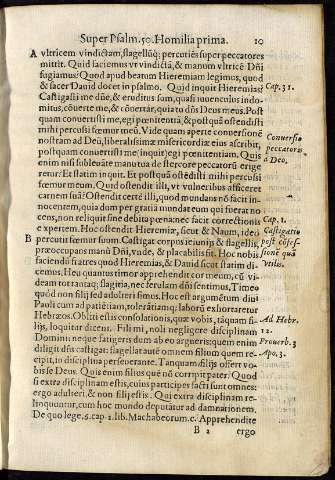 Super Psalm. 50. Homilia prima. 10
A vltricem vindictam, flagellūq; percutiēs super peccatores
mittit. Quid faciemus vt vindictā, & manum vltricē Dñi
fugiamus? Quod apud beatum Hieremiam legimus, quod
& sacer Dauid docet in psalmo. Quid inquit Hieremias?
Cap. 31.
Castigasti me dñe, & eruditus sum, quasi iuuenculus indo-
mitus, cōuerte me, & cōuertar, quia tu dñs Deus meus. Post
quam conuertisti me, egi pœnitentiā, & postquā ostendisti
mihi percussi fœmur meū. Vide quam aperte conuersionē
nostram ad Deū, liberalissimæ misericordiæ eius ascribit,
Conuersio
peccatoris
à Deo.
postquam conuertisti me (inquit) egi pœnitentiam. Quis
enim nisi subleuāte manu tua de stercore peccatorū erige
retur? Et statim inquit. Et postquā ostēdisti mihi percussi
fœmur meum. Quid ostendit illi, vt vulneribus afficeret
carnem suā? Ostendit certè illi, quod mundans nō facit in-
nocentem, quia dum per gratiā mundat eum qui fuerat no-
cens, non reliquit sine debita pœna nec facit correctionis
Cap. 1.
e expertem. Hoc ostendit Hieremiæ, sicut & Naum, ideò
Castigatio
post cōfes-
sionē quā
vtilis.
B percutit fœmur suum. Castigat corpus ieiunijs & flagellis,
præoccupans manū Dñi, vnde, & placabilis sit. Hoc nobis
faciendū fratres quod Hieremias, & Dauid sicut statim di-
cemus: Heu quantus timor apprehendit cor meum, cū vi-
deam tot tantaq; flagitia, nec ferulam dñi sentimus. Timeo
quòd non filij sed adulteri simus. Hoc est argumētum diui
Pauli cum ad patiētiam, tolerātiamq; laborū exhortaretur
Hebræos. Obliti estis consolationis, quæ vobis, tāquam fi-
Ad Hebr.
12.
lijs, loquitur dicens. Fili mi, noli negligere disciplinam
Domini: neque fatigeris dum ab eo argueris: quem enim
Prouerb. 3
diligit dñs castigat: flagellat autē omnem filium quem re-
Apo. 3.
cipit, in disciplina perseuerante. Tanquam filijs offert vo-
bis se Deus. Quis enim filius quē nō corripit pater? Quod
si extra disciplinam estis, cuius participes facti sunt omnes:
ergo adulteri, & non filij estis. Qui extra disciplinam re-
linquuntur, cum hoc mundo deputātur ad damnationem.
De quo lege, 5. cap. 2. lib. Machabæorum. c. Apprehendite
B 2 ergo